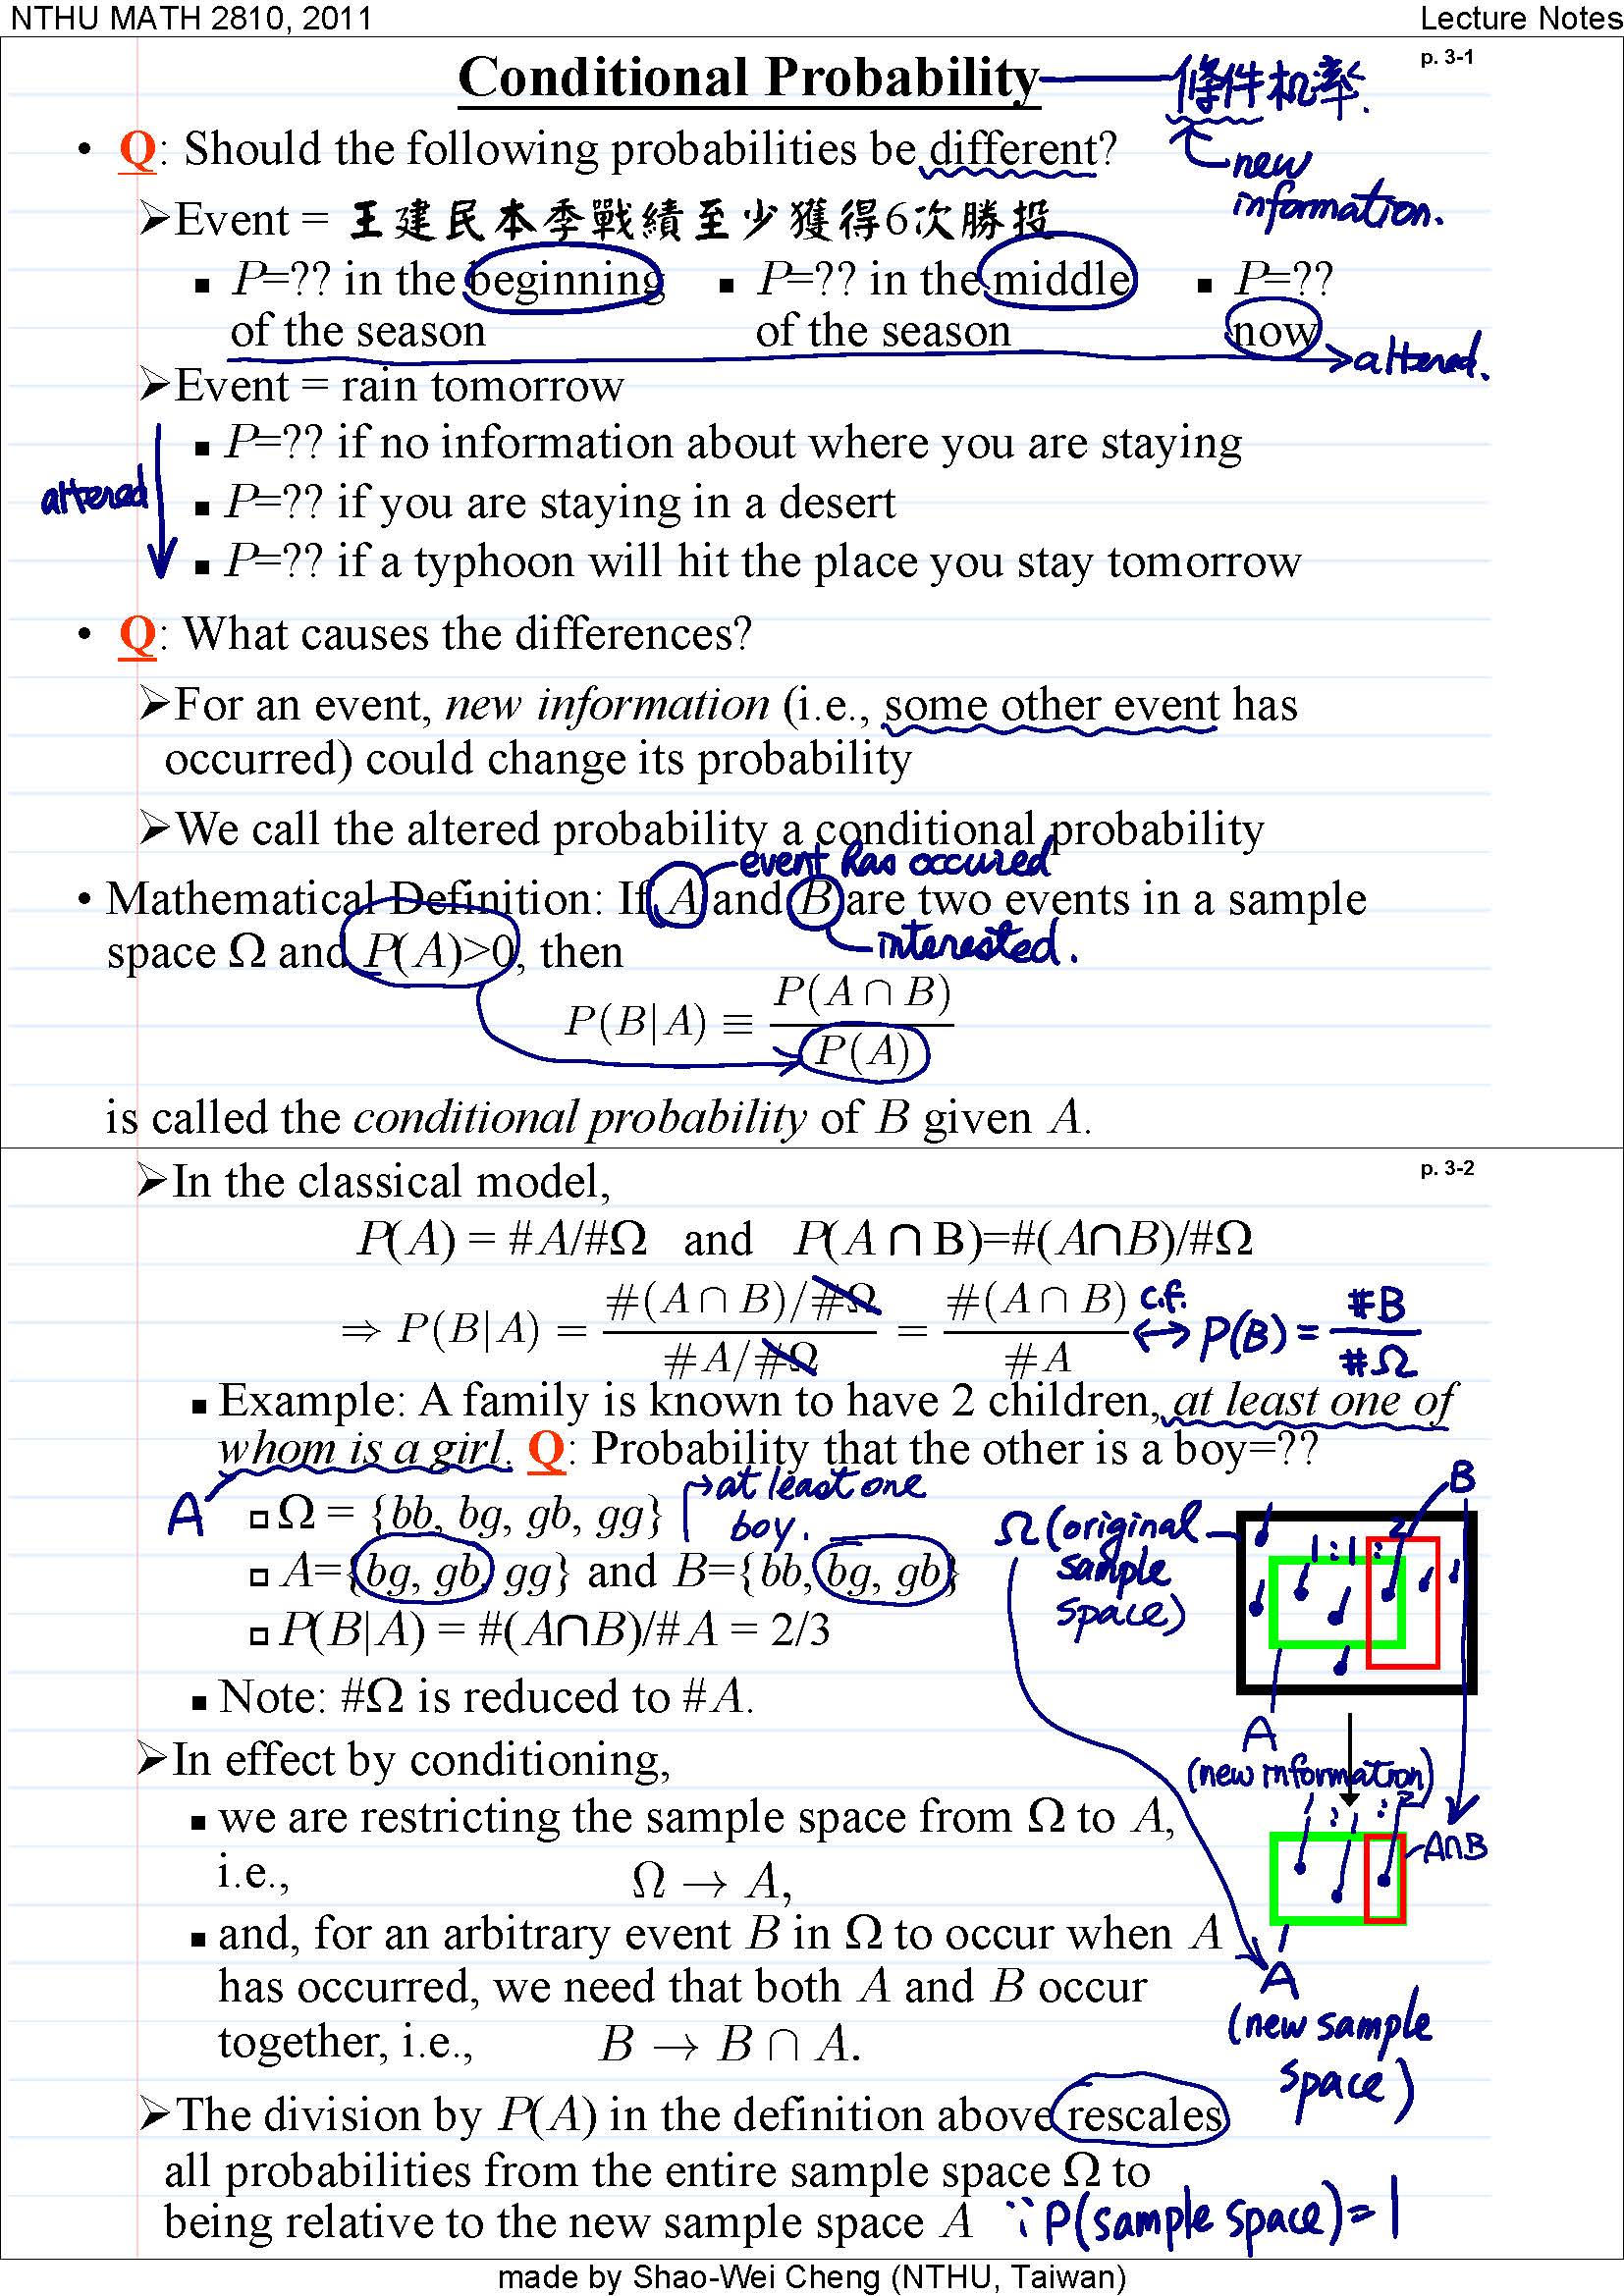 NTHU MATH 2810, 2011
Lecture Notes
p. 3-1
Conditional Probability
條件机率.
new
information.
• Q: Should the following probabilities be different?
➢Event = 王建民本季戰績至少獲得6次勝投
▪ P=?? in the beginning of the season
▪ P=?? in the middle of the season
▪ P=?? now
altered.
➢Event = rain tomorrow
altered
▪ P=?? if no information about where you are staying
▪ P=?? if you are staying in a desert
▪ P=?? if a typhoon will hit the place you stay tomorrow
• Q: What causes the differences?
➢For an event, new information (i.e., some other event has
occurred) could change its probability
➢We call the altered probability a conditional probability
event has occured
• Mathematical Definition: If A and B are two events in a sample
space Ω and P(A)>0, then
interested.
P(B|A) ≡ P(A ∩ B) / P(A)
is called the conditional probability of B given A.
p. 3-2
➢In the classical model,
P(A) = #A/#Ω and P(A ∩ B)=#(A∩B)/#Ω
⇒ P(B|A) = #(A ∩ B)/#Ω / #A/#Ω = #(A ∩ B) / #A c.f. ↔ P(B) = #B / #Ω
▪ Example: A family is known to have 2 children, at least one of
whom is a girl. Q: Probability that the other is a boy=??
A
□ Ω = {bb, bg, gb, gg}
at least one
boy.
□ A={bg, gb, gg} and B={bb, bg, gb}
□ P(B|A) = #(A∩B)/#A = 2/3
▪ Note: #Ω is reduced to #A.
B
Ω (original
sample
space)
1 : 1 : 2
A
(new information)
1 : 1 : 2
A∩B
A
(new sample
space)
➢In effect by conditioning,
▪ we are restricting the sample space from Ω to A,
i.e., Ω → A,
▪ and, for an arbitrary event B in Ω to occur when A
has occurred, we need that both A and B occur
together, i.e., B → B ∩ A.
➢The division by P(A) in the definition above rescales
all probabilities from the entire sample space Ω to
being relative to the new sample space A ∵ P(sample space)=1
made by Shao-Wei Cheng (NTHU, Taiwan)